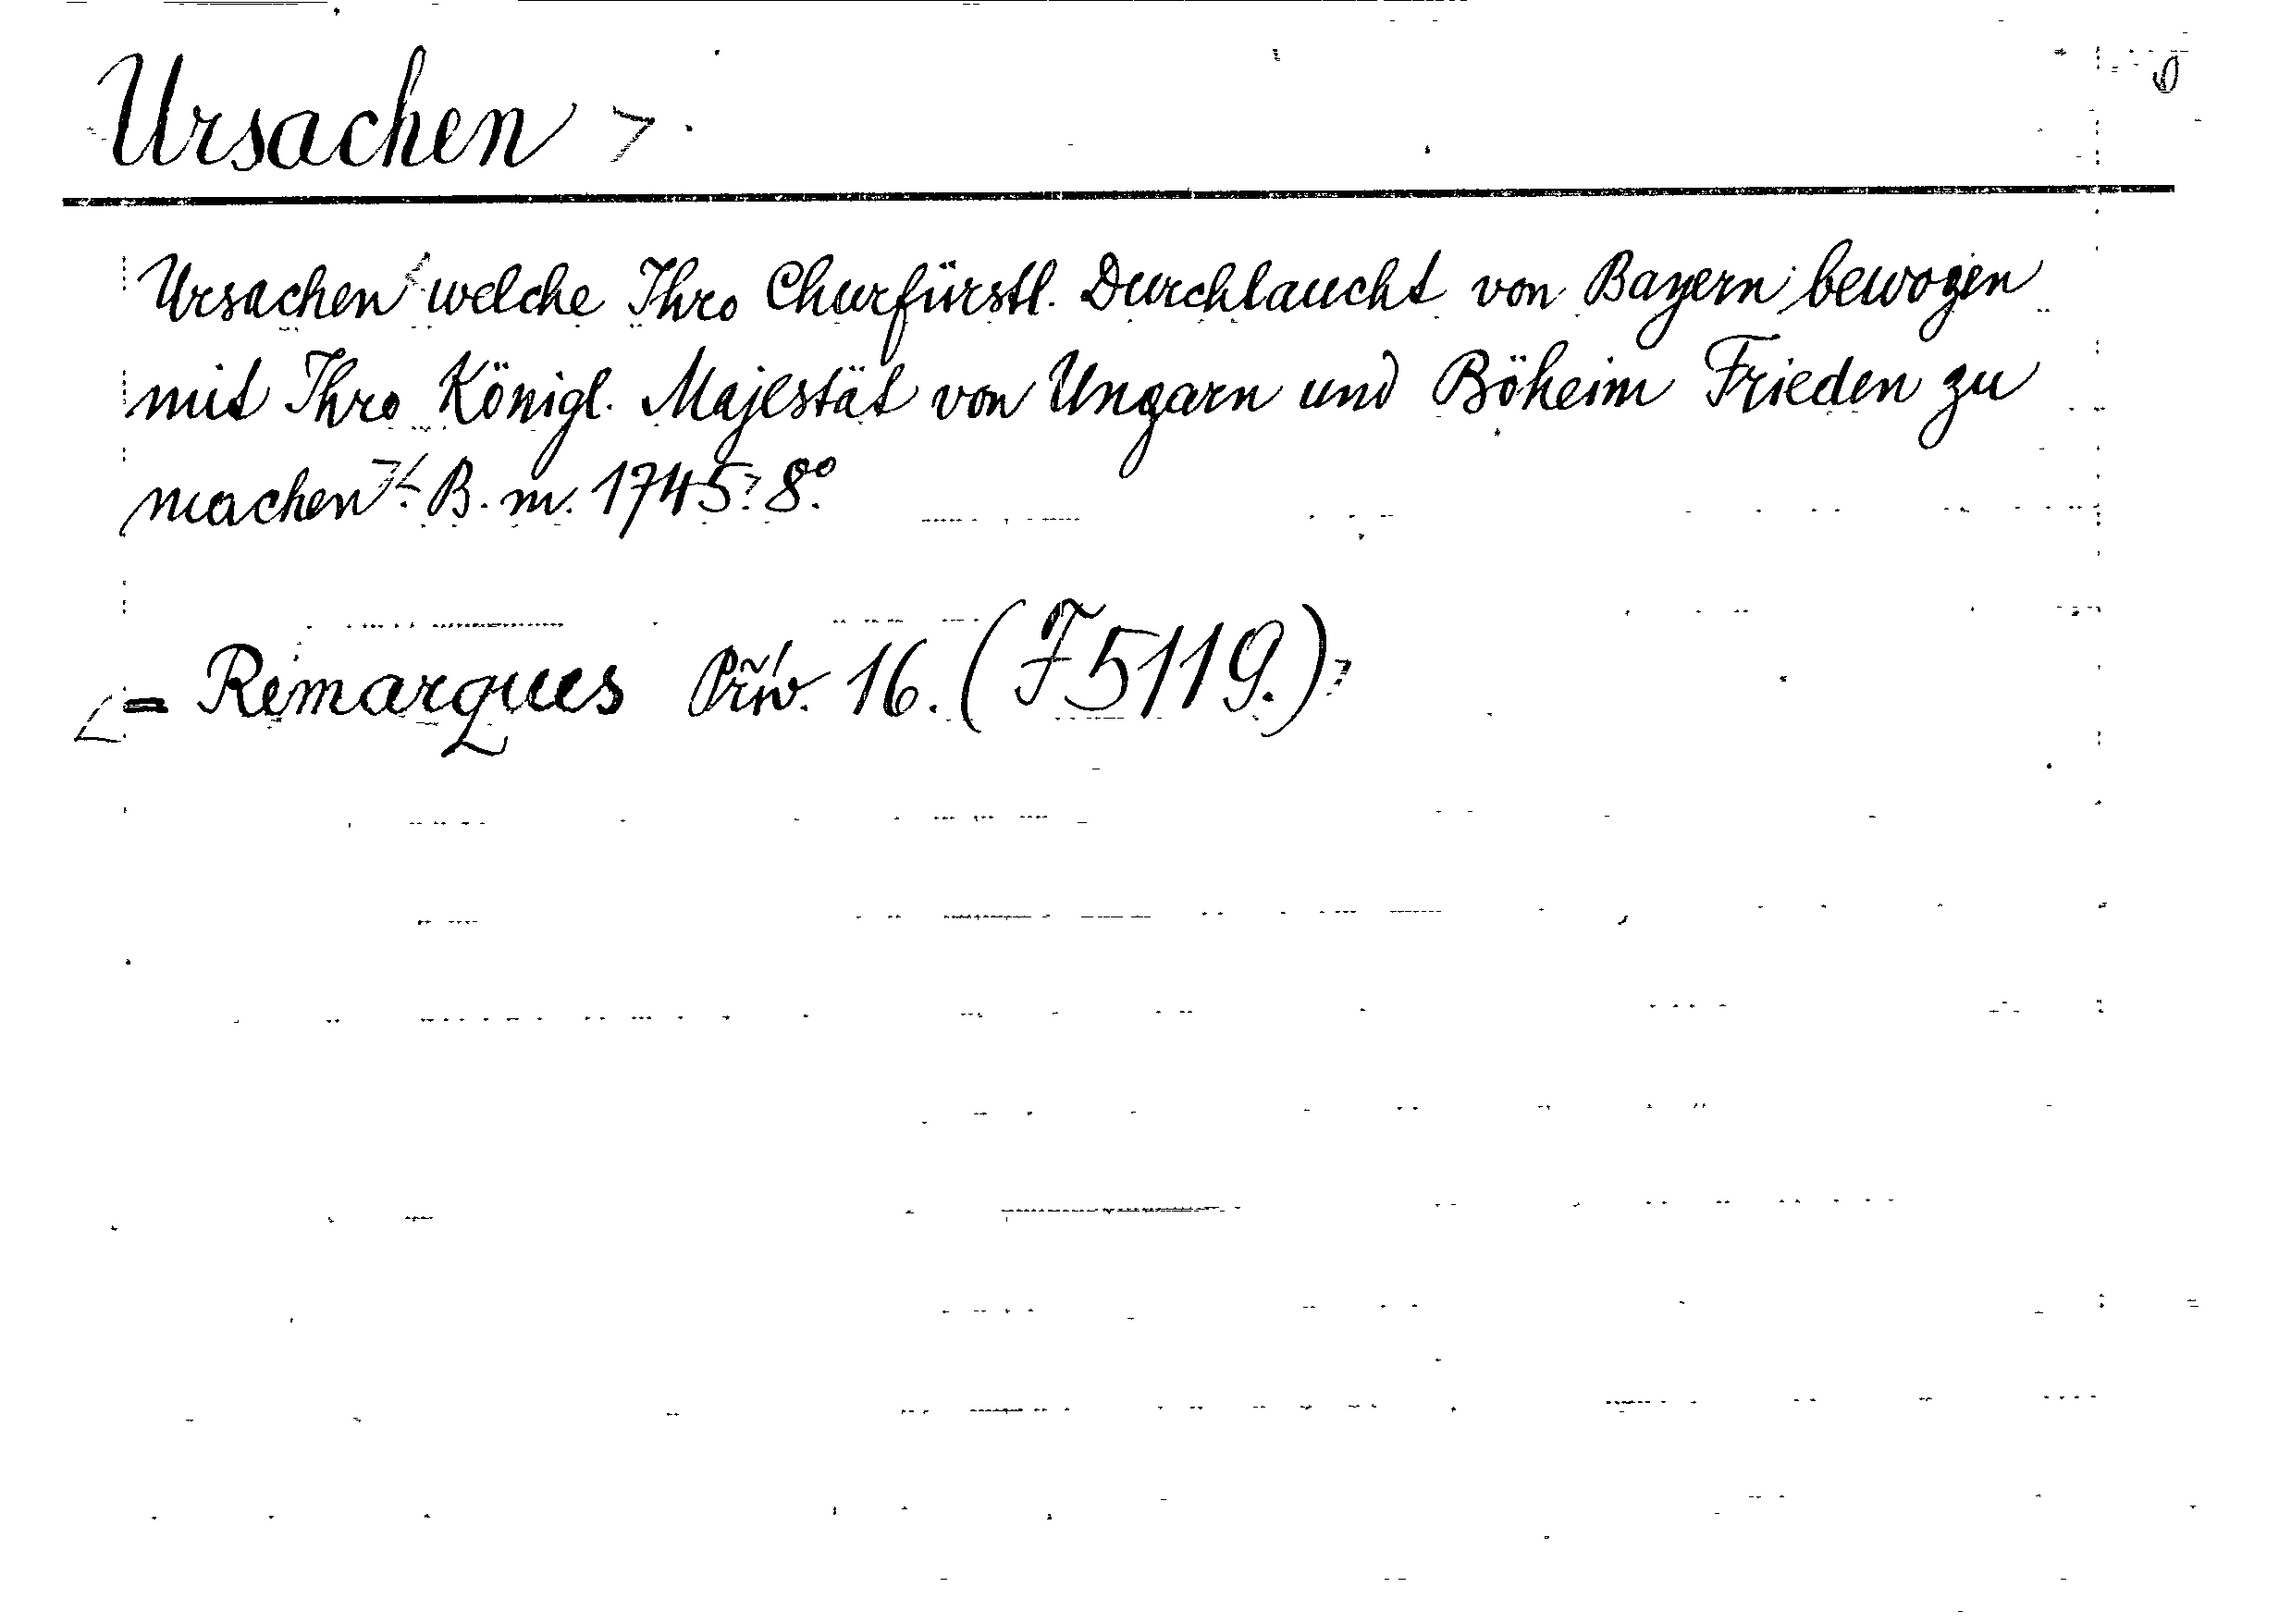 Ursachen
Ursachen welche Ihro Churfürstl. Durchlaucht von Bayern bewogen
mit Ihro Königl. Majestät von Ungarn und Böheim Frieden zu
machen. B. m. 1745. 8°.
= Remarques 16. (F 5119.)